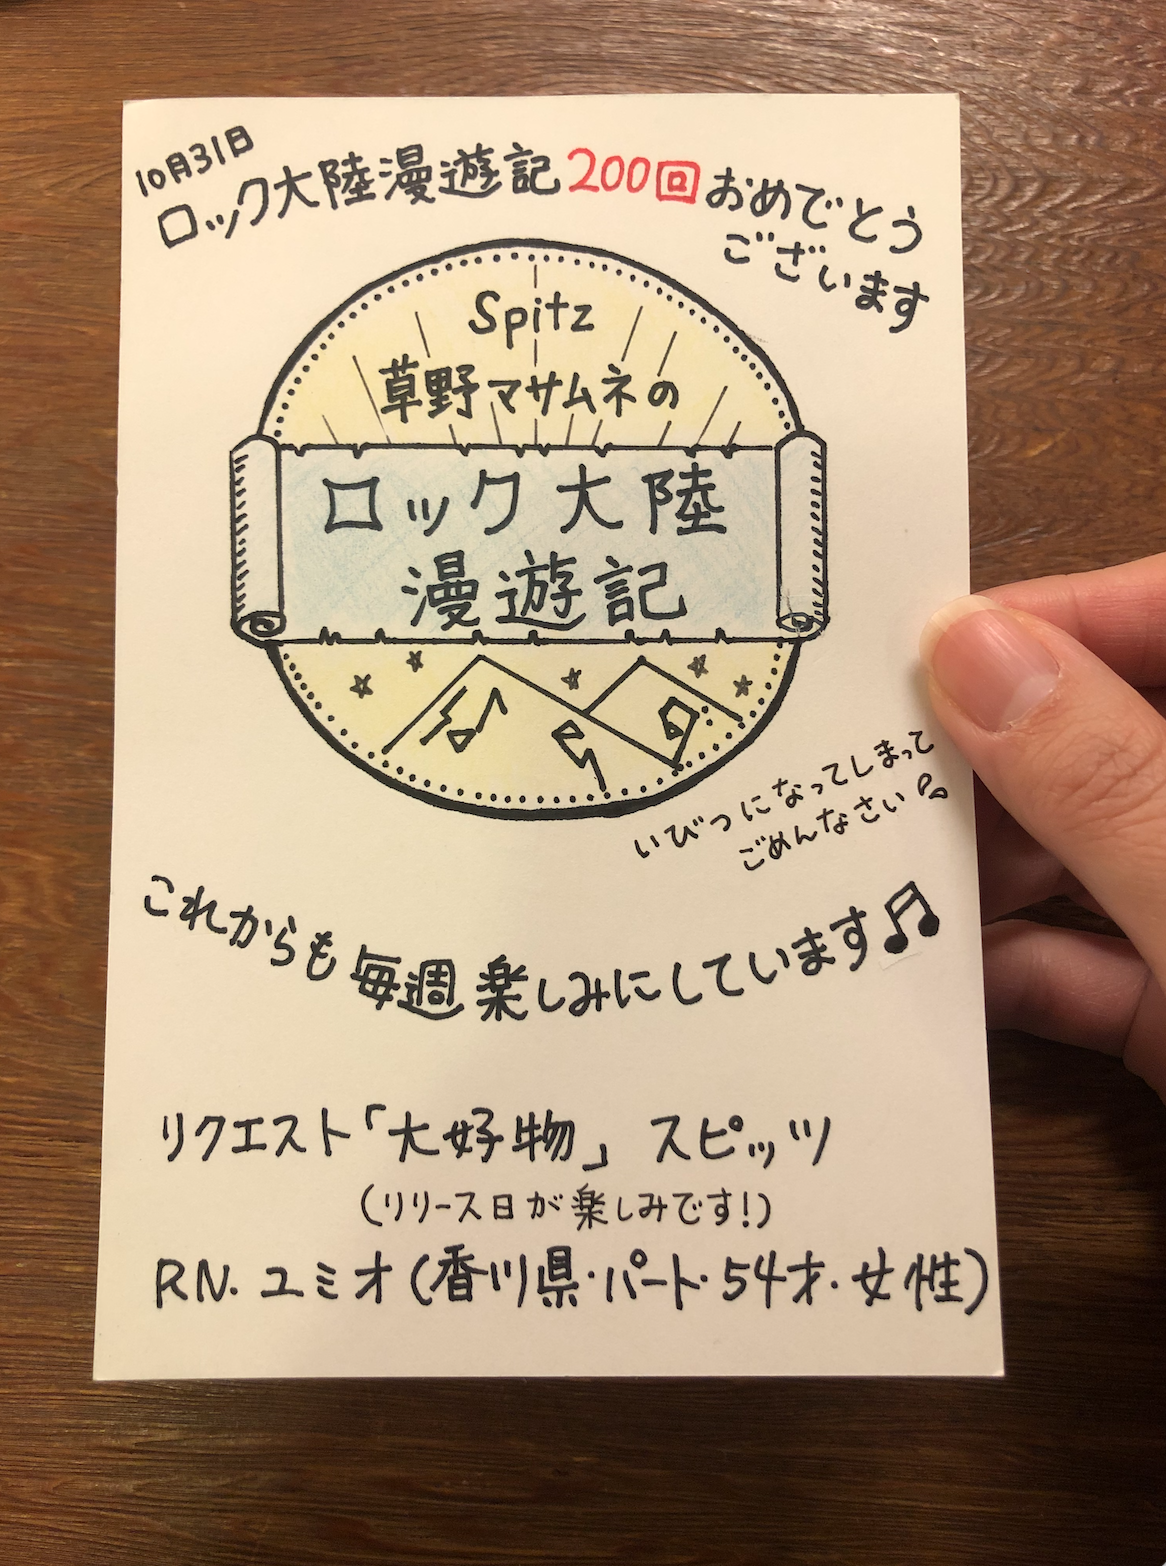 10月31日
ロック大陸漫遊記200回おめでとう
ございます
Spitz
草野マサムネの
ロック大陸
漫遊記
いびつになってしまって
ごめんなさい
これからも毎週楽しみにしています♫
リクエスト「大好物」 スピッツ
(リリース日が楽しみです!)
RN. ユミオ(香川県・パート・54才・女性)